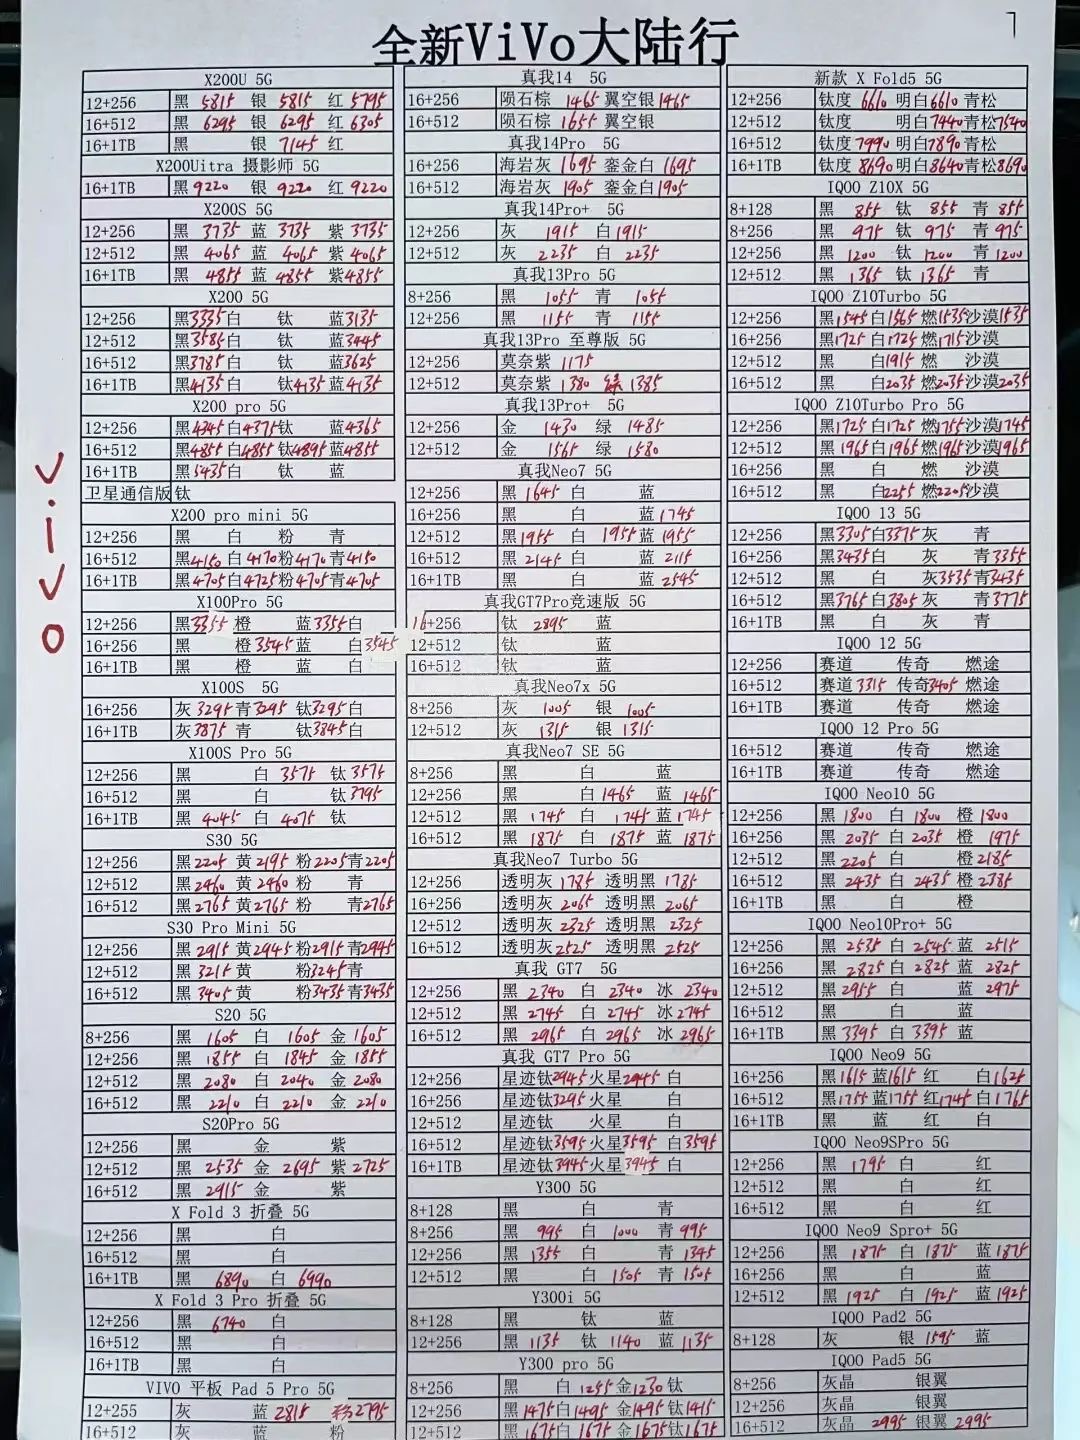 全新ViVo大陆行
7
ViVo
X200U 5G
12+256 黑 5815 银 5815 红 5795
16+512 黑 6295 银 6295 红 6305
16+1TB 黑 银 7145 红
X200Uitra 摄影师 5G
16+1TB 黑 9220 银 9220 红 9220
X200S 5G
12+256 黑 3735 蓝 3735 紫 3735
16+512 黑 4065 蓝 4065 紫 4065
16+1TB 黑 4855 蓝 4855 紫 4855
X200 5G
12+256 黑3335白 钛 蓝3135
12+512 黑3585白 钛 蓝3445
16+512 黑3785白 钛 蓝3625
16+1TB 黑4135白 钛4135蓝4135
X200 pro 5G
12+256 黑4345白4375钛 蓝4365
16+512 黑4855白4855钛4895蓝4855
16+1TB 黑5435白 钛 蓝
卫星通信版 钛
X200 pro mini 5G
12+256 黑 白 粉 青
16+512 黑4150白4170粉4170青4150
16+1TB 黑4705白4725粉4705青4705
X100Pro 5G
12+256 黑3355橙 蓝3355白
16+256 黑 橙3545蓝 白3545
16+1TB 黑 橙 蓝 白
X100S 5G
16+256 灰3295青3295钛3295白
16+1TB 灰3875青 钛3845白
X100S Pro 5G
12+256 黑 白 3575 钛3575
16+512 黑 白 钛3795
16+1TB 黑 4045 白 4075 钛
S30 5G
12+256 黑2205 黄2195 粉2205青2205
12+512 黑2460 黄2460 粉 青
16+512 黑2765 黄2765 粉 青2765
S30 Pro Mini 5G
12+256 黑 2915 黄2945粉2915青2945
12+512 黑 3215 黄 粉3245青
16+512 黑 3405 黄 粉3435青3435
S20 5G
8+256 黑 1605 白 1605 金 1605
12+256 黑 1855 白 1845 金 1855
12+512 黑 2080 白 2040 金 2080
16+512 黑 2210 白 2210 金 2210
S20Pro 5G
12+256 黑 金 紫
12+512 黑 2535 金 2695 紫 2725
16+512 黑 2915 金 紫
X Fold 3 折叠 5G
12+256 黑 白
16+512 黑 白
16+1TB 黑 6890 白 6990
X Fold 3 Pro 折叠 5G
12+256 黑 6740 白
16+512 黑 白
16+1TB 黑 白
VIVO 平板 Pad 5 Pro 5G
12+255 灰 蓝 2815 粉2795
16+512 灰 蓝 粉
真我14 5G
16+256 陨石棕 1465 翼空银1465
16+512 陨石棕 1655 翼空银
真我14Pro 5G
16+256 海岩灰 1695 銮金白 1695
16+512 海岩灰 1905 銮金白1905
真我14Pro+ 5G
12+256 灰 1915 白1915
12+512 灰 2235 白 2235
真我13Pro 5G
8+256 黑 1055 青 1055
12+256 黑 1155 青 1155
真我13Pro 至尊版 5G
12+256 莫奈紫 1175
12+512 莫奈紫 1380 绿 1385
真我13Pro+ 5G
12+256 金 1430 绿 1485
12+512 金 1565 绿 1580
真我Neo7 5G
12+256 黑 1645 白 蓝
16+256 黑 白 蓝1745
12+512 黑1955 白 1955蓝1955
16+512 黑 2145 白 蓝 2115
16+1TB 黑 白 蓝 2545
真我GT7Pro竞速版 5G
16+256 钛 2895 蓝
12+512 钛 蓝
16+512 钛 蓝
真我Neo7x 5G
8+256 灰 1005 银 1005
12+512 灰 1315 银 1315
真我Neo7 SE 5G
8+256 黑 白 蓝
12+256 黑 白1465 蓝 1465
12+512 黑 1745 白 1745 蓝1745
16+512 黑 1875 白 1875 蓝 1875
真我Neo7 Turbo 5G
12+256 透明灰 1785 透明黑 1785
16+256 透明灰 2065 透明黑 2065
12+512 透明灰 2325 透明黑 2325
16+512 透明灰2525 透明黑 2525
真我 GT7 5G
12+256 黑 2340 白 2340 冰 2340
12+512 黑 2745 白 2745 冰2745
16+512 黑 2965 白 2965 冰 2965
真我 GT7 Pro 5G
12+256 星迹钛2945火星2945 白
16+256 星迹钛3295火星 白
12+512 星迹钛 火星 白
16+512 星迹钛3595火星3595 白3595
16+1TB 星迹钛3945火星3945 白
Y300 5G
8+128 黑 白 青
8+256 黑 995 白 1000 青 995
12+256 黑 1355 白 青 1345
12+512 黑 白 1505 青 1505
Y300i 5G
8+128 黑 钛 蓝
12+256 黑 1135 钛 1140 蓝1135
Y300 pro 5G
8+256 黑 白 1255金1230钛
12+256 黑1475白1495 金1495钛1415
12+512 黑1675白 1675金1675钛1675
新款 X Fold5 5G
12+256 钛度 6610 明白6610青松
12+512 钛度 明白7440青松7540
16+512 钛度7990明白7890青松
16+1TB 钛度8690明白8640青松8690
IQOO Z10X 5G
8+128 黑 855 钛 855 青 855
8+256 黑 975 钛 975 青 975
12+256 黑 1200 钛 1200 青1200
12+512 黑 1365 钛 1365 青
IQOO Z10Turbo 5G
12+256 黑1545白1565燃1535沙漠1535
16+256 黑1725白1725燃1715沙漠
12+512 黑 白1915 燃 沙漠
16+512 黑 白2035燃2035沙漠2035
IQOO Z10Turbo Pro 5G
12+256 黑1725白1725燃1755沙漠1745
12+512 黑1965白1965燃1965沙漠1965
16+256 黑 白 燃 沙漠
16+512 黑 白2255燃2205沙漠
IQOO 13 5G
12+256 黑3305白3375灰 青
16+256 黑3435白 灰 青3355
12+512 黑 白 灰3535青3435
16+512 黑3765白3805灰 青3775
16+1TB 黑 白 灰 青
IQOO 12 5G
12+256 赛道 传奇 燃途
16+512 赛道3315 传奇3405燃途
16+1TB 赛道 传奇 燃途
IQOO 12 Pro 5G
16+512 赛道 传奇 燃途
16+1TB 赛道 传奇 燃途
IQOO Neo10 5G
12+256 黑 1800 白 1800 橙 1800
16+256 黑 2035 白 2035 橙 1975
12+512 黑 2205 白 橙2185
16+512 黑 2435 白 2435 橙 2385
16+1TB 黑 白 橙
IQOO Neo10Pro+ 5G
12+256 黑 2535 白 2545 蓝 2515
16+256 黑 2825 白 2825 蓝 2825
12+512 黑 2955 白 蓝 2975
16+512 黑 白 蓝
16+1TB 黑 3395 白 3395 蓝
IQOO Neo9 5G
16+256 黑1615蓝1615 红 白1625
16+512 黑1755蓝1755 红1745白1765
16+1TB 黑 蓝 红 白
IQOO Neo9SPro 5G
12+256 黑 1795 白 红
12+512 黑 白 红
16+512 黑 白 红
IQOO Neo9 Spro+ 5G
12+256 黑 1875 白 1875 蓝1875
16+256 黑 白 蓝
12+512 黑 1925 白 1925 蓝1925
IQOO Pad2 5G
8+128 灰 银 1595 蓝
IQOO Pad5 5G
8+256 灰晶 银翼
12+256 灰晶 银翼
16+512 灰晶 2995 银翼 2995